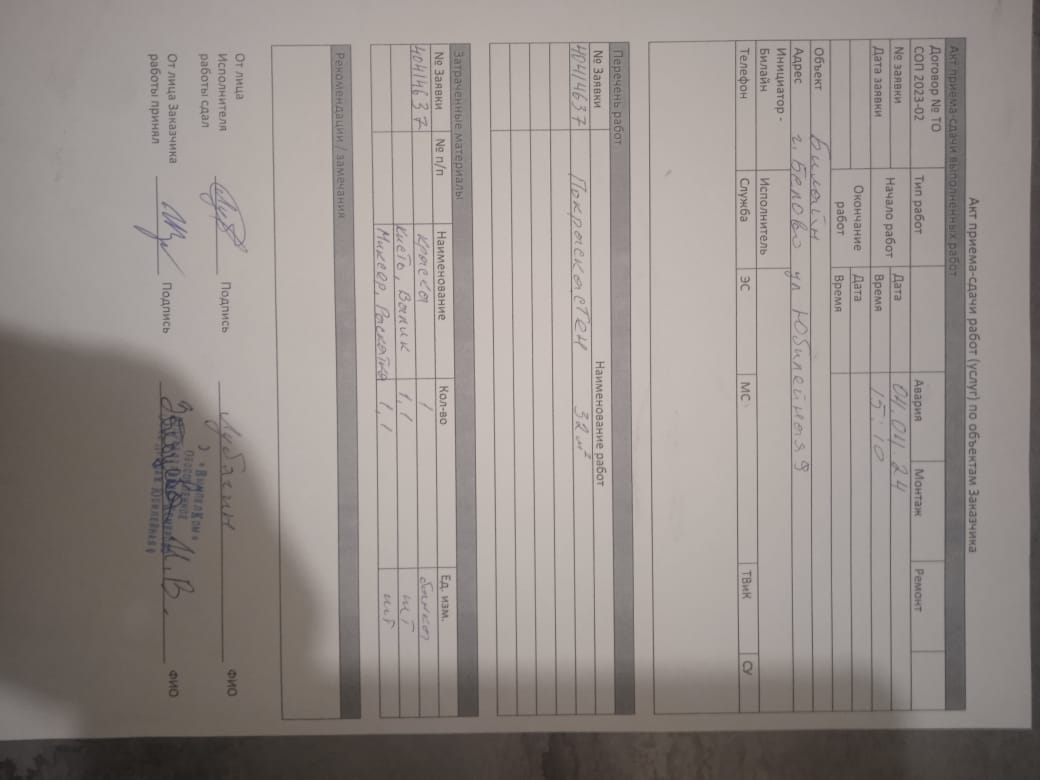 Акт приема-сдачи работ (услуг) по объектам Заказчика
Акт приема-сдачи выполненных работ
Договор № ТО СОП 2023-02 Тип работ Авария Монтаж Ремонт
№ заявки Начало работ Дата 04.04.24
Дата заявки Время 15:10
Окончание работ Дата
Время
Объект Билайн
Адрес г. Белово ул Юбилейная 9
Инициатор - Билайн Исполнитель
Телефон Служба ЭС МС ТВиК СУ
Перечень работ
№ Заявки Наименование работ
40414637 Покраска стен 32 м²
Затраченные материалы
№ Заявки № п/п Наименование Кол-во Ед. изм.
40414637 Краска 1 банка
Кисть, Валик 1,1 шт
Миксер, 1,1 шт
Рекомендации / замечания
От лица
Исполнителя
работы сдал Подпись ФИО
От лица Заказчика
работы принял Подпись И.В. ФИО
«Вымпелком»
Обособленное